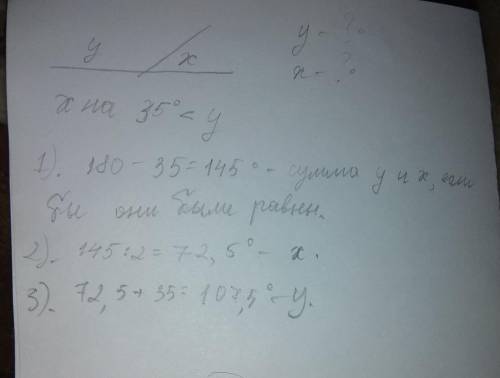 y x
y - ?°
x - ?°
x на 35° < y
1). 180 - 35 = 145° - сумма y и x, если
бы они были равны.
2). 145 : 2 = 72,5° - x.
3). 72,5 + 35 = 107,5° - y.